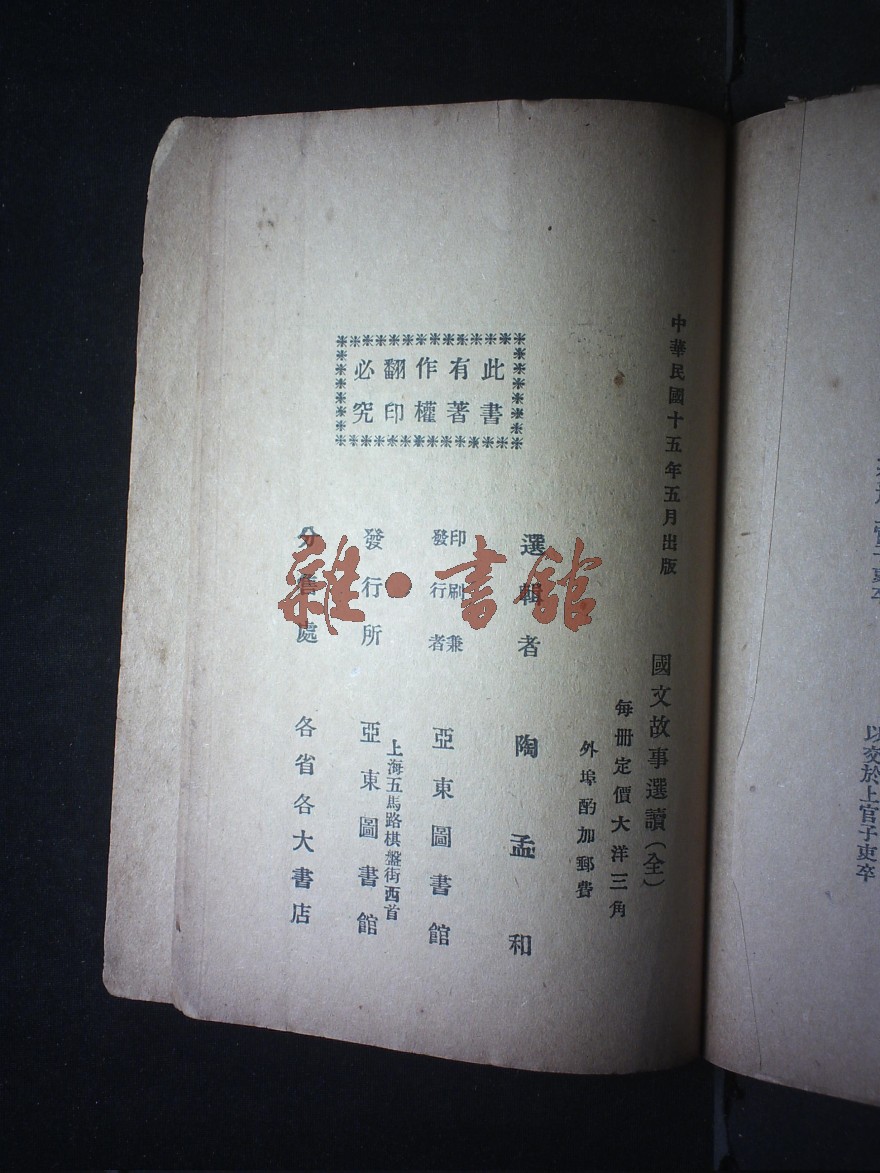 中華民國十五年五月出版
國文故事選讀（全）
每册定價大洋三角
外埠酌加郵費
選輯者 陶孟和
印刷兼發行者 亞東圖書館
上海五馬路棋盤街西首
發行所 亞東圖書館
分售處 各省各大書店
此書
有著
作權
翻印
必究
雜·書館
以交於上官子吏卒